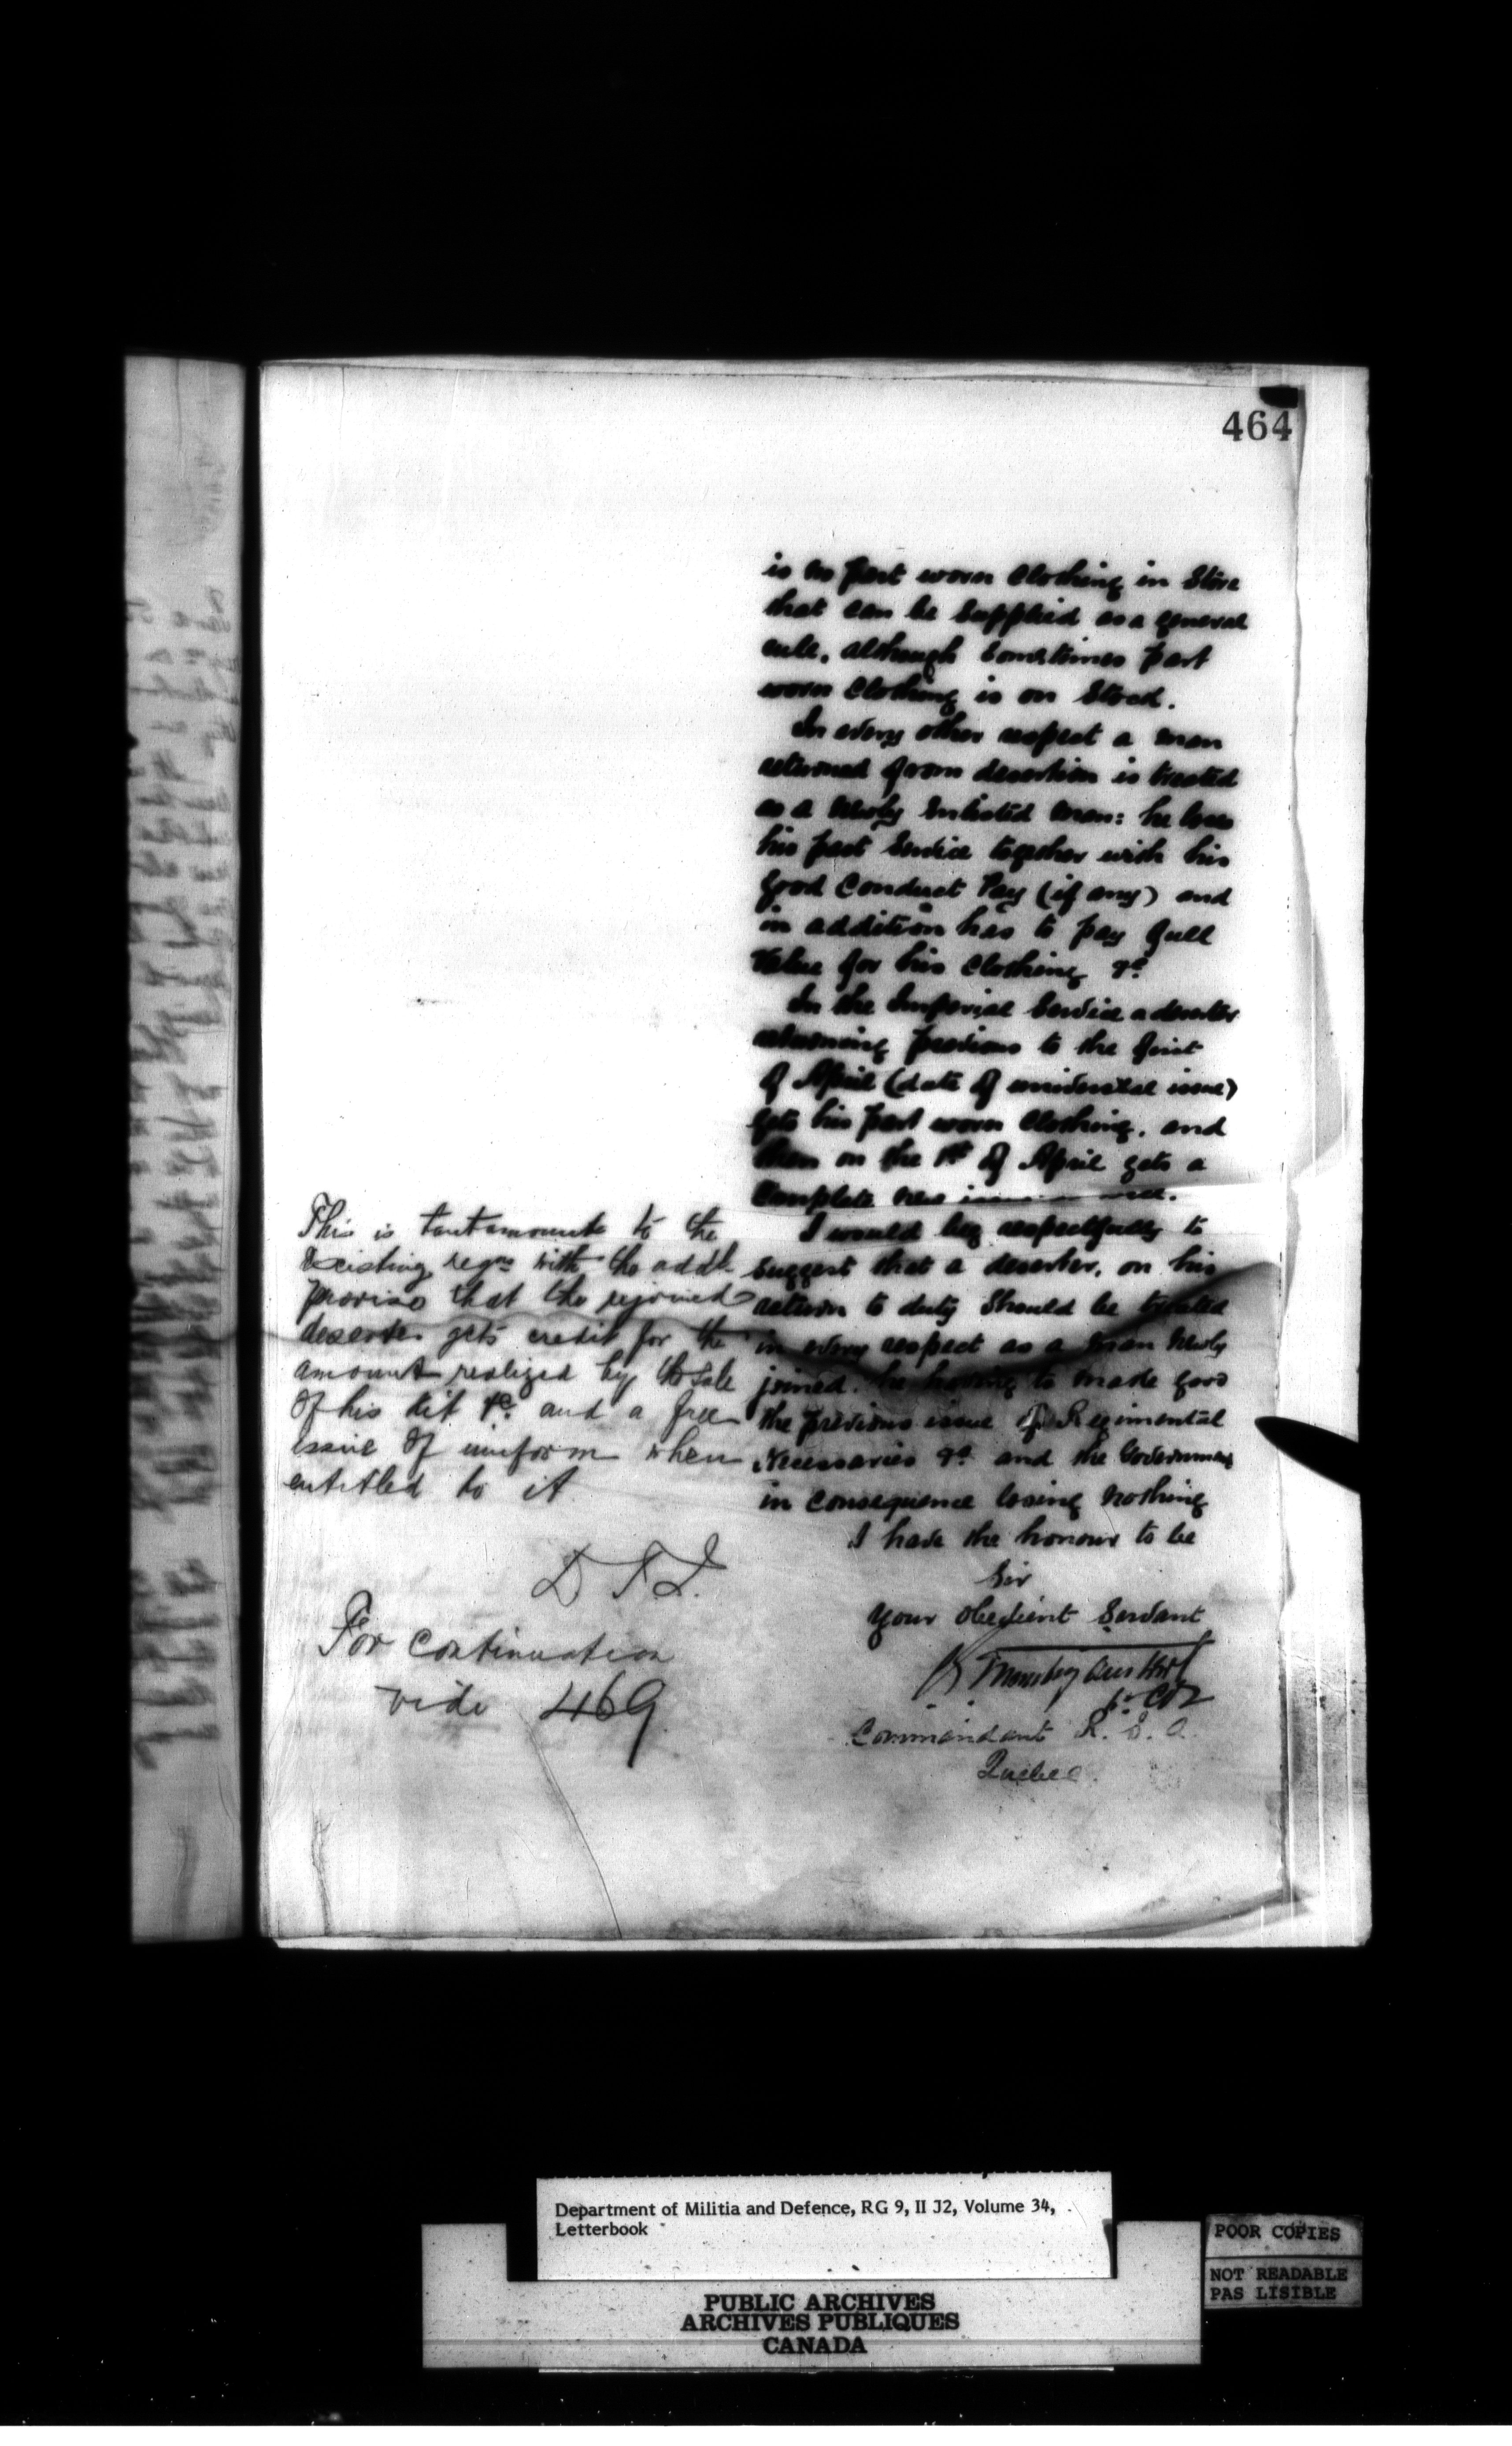 464
is no part worn Clothing in Store
that can be Supplied as a general
rule, although Sometimes part
worn Clothing is on Stock.
In every other respect a man
returned from desertion is treated
as a newly Enlisted man: he loses
his past Service together with his
good Conduct Pay (if any) and
in addition has to pay full
Value for his Clothing &c
In the Imperial Service a deserter
returning previous to the first
of April (date of universal issue)
gets his part worn Clothing, and
then on the 1st of April gets a
Complete new issue
I would beg respectfully to
Suggest that a deserter, on his
return to duty Should be treated
in every respect as a man newly
joined. he having to made good
the previous issue of Regimental
Necessaries &c and the Government
in Consequence losing nothing
I have the honour to be
Sir
Your Obedient Servant
Lt Col
Commandant R. S. A.
Quebec.
This is tantamount to the
Existing regns with the addl
proviso that the rejoined
deserter gets credit for the
amount realized by the sale
Of his kit &c. and a free
issue of uniform when
entitled to it
For continuation
vide 469
Department of Militia and Defence, RG 9, II J2, Volume 34,
Letterbook
PUBLIC ARCHIVES
ARCHIVES PUBLIQUES
CANADA
POOR COPIES
NOT READABLE
PAS LISIBLE